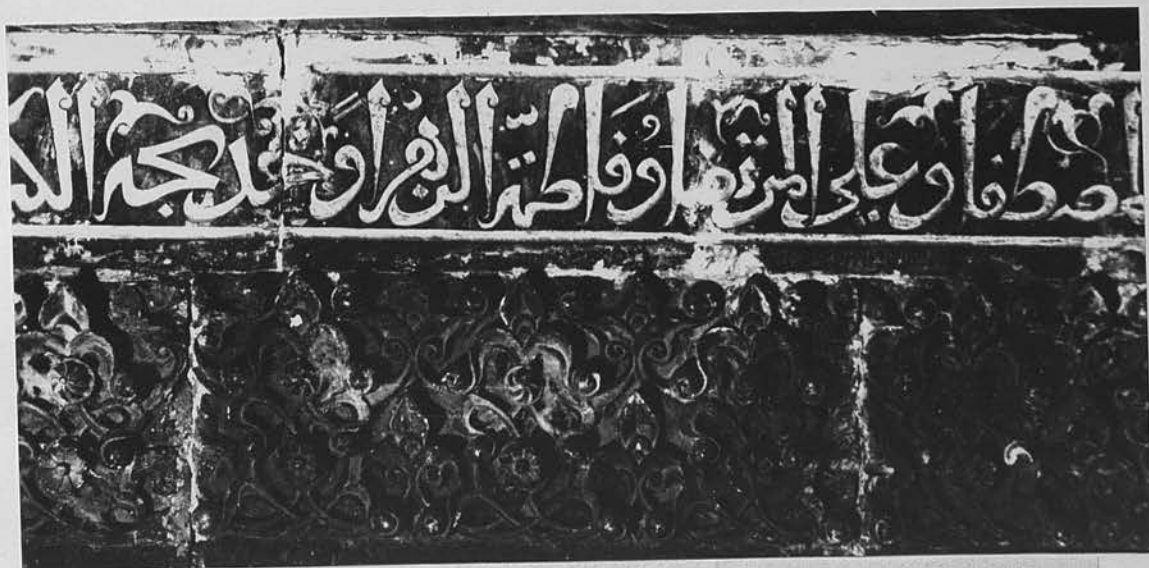 المصطفا وعلي المرتضا وفاطمة الزهرا وخديجة الك